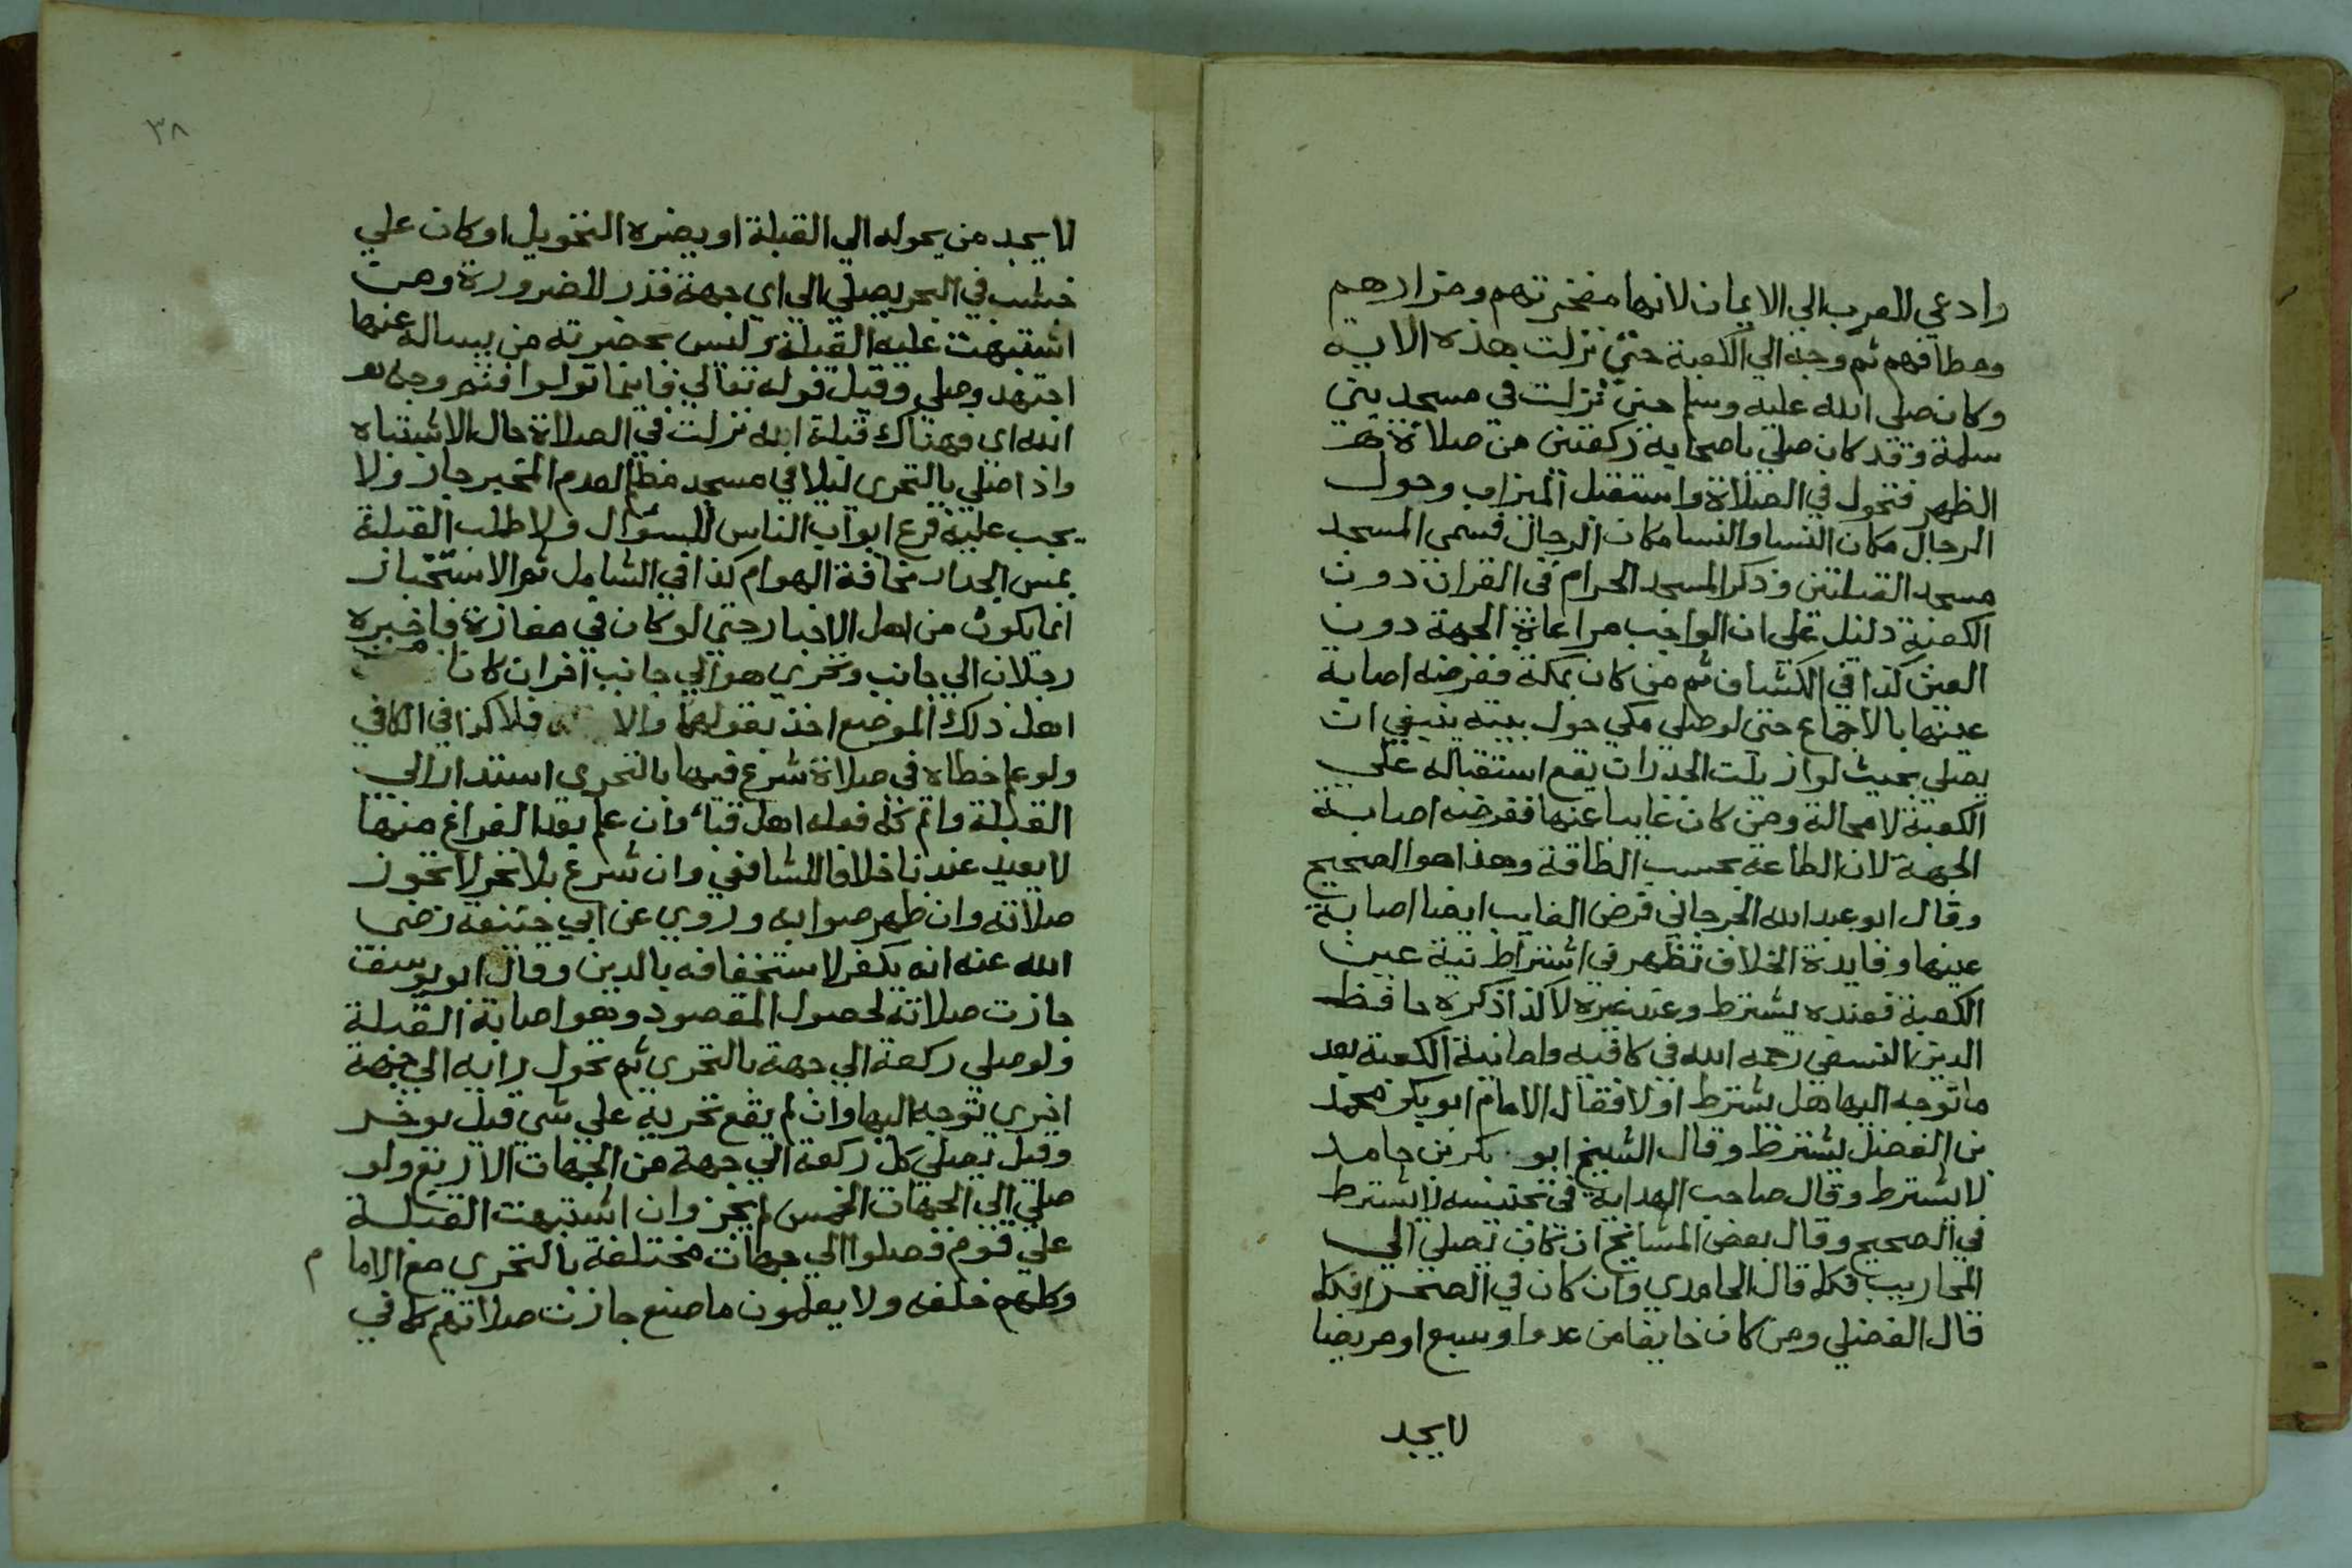 وادعي للعرب الي الايمان لانها مفخرتهم ومزارهم
ومطافهم ثم وجه الي الكعبة حتي نزلت هذه الاية
وكان صلي الله عليه وسلم حتي نزلت في مسجد بني
سلمة وقد كان صلي باصحابه ركعتين من صلاة
الظهر فتحول في الصلاة واستقبل الميزاب وحول
الرجال مكان النسا والنسا مكان الرجال فسمي المسجد
مسجد القبلتين وذكر المسجد الحرام في القران دون
الكعبة دليل علي ان الواجب مراعاة الجهة دون
العين كذا في الكشاف ثم من كان بمكة ففرضه اصابة
عينها بالاجماع حتي لو صلي مكي حول بيته ينبغي ان
يصلي بحيث لو ازيلت الجدران يقع استقباله علي
الكعبة لا محالة ومن كان غايبا عنها ففرضه اصابة
الجهة لان الطاعة بحسب الطاقة وهذا هو الصحيح
وقال ابو عبد الله الجرجاني فرض الغايب ايضا اصابة
عينها وفايدة الخلاف تظهر في اشتراط نية عين
الكعبة فعنده يشترط وعند غيره لا كذا ذكره حافظ
الدين النسفي رحمه الله في كافيه واما نية الكعبة بعد
ما توجه اليها هل يشترط او لا فقال الامام ابو بكر محمد
بن الفضل يشترط وقال الشيخ ابو بكر بن حامد
لا يشترط وقال صاحب الهداية في تجنيسه لا يشترط
في الصحيح وقال بعض المشايخ ان كان يصلي الي
المحاريب فكما قال الحامدي وان كان في الصحرا فكما
قال الفضلي ومن كان خايفا من عدو او سبع او مريضا
لا يجد
٣٨
لا يجد من يحوله الي القبلة او يضره التحويل او كان علي
خشب في البحر يصلي الي اي جهة قدر للضرورة ومن
اشتبهت عليه القبلة وليس بحضرته من يساله عنها
اجتهد وصلي وقيل قوله تعالي فاينما تولوا فثم وجه
الله اي فهناك قبلة الله نزلت في الصلاة حال الاشتباه
واذا صلي بالتحري ليلا في مسجد مظلم لعدم المخبر جاز ولا
يجب عليه قرع ابواب الناس للسوال ولا طلب القبلة
بمس الجدار مخافة الهوام كذا في الشامل ثم الاستخبار
انما يكون من اهل الاخبار حتي لو كان في مفازة فاخبره
رجلان الي جانب وتحري هو الي جانب اخر ان كانا من
اهل ذلك الموضع اخذ بقولهما والا فلا كذا في الكافي
ولو علم خطاه في صلاة شرع فيها بالتحري استدار الي
القبلة واتم كما فعله اهل قباء وان علم بعد الفراغ منها
لا يعيد عندنا خلافا للشافعي وان شرع بلا تحر لا تجوز
صلاته وان ظهر صوابه وروي عن ابي حنيفة رضي
الله عنه انه يكفر لاستخفافه بالدين وقال ابو يوسف
جازت صلاته لحصول المقصود وهو اصابة القبلة
ولو صلي ركعة الي جهة بالتحري ثم تحول رايه الي جهة
اخري توجه اليها وان لم يقع تحريه علي شي قيل يوخر
وقيل يصلي كل ركعة الي جهة من الجهات الاربع ولو
صلي الي الجهات الخمس لم يجز وان اشتبهت القبلة
علي قوم فصلوا الي جهات مختلفة بالتحري مع الامام
وكلهم خلفه ولا يعلمون ما صنع جازت صلاتهم كما في